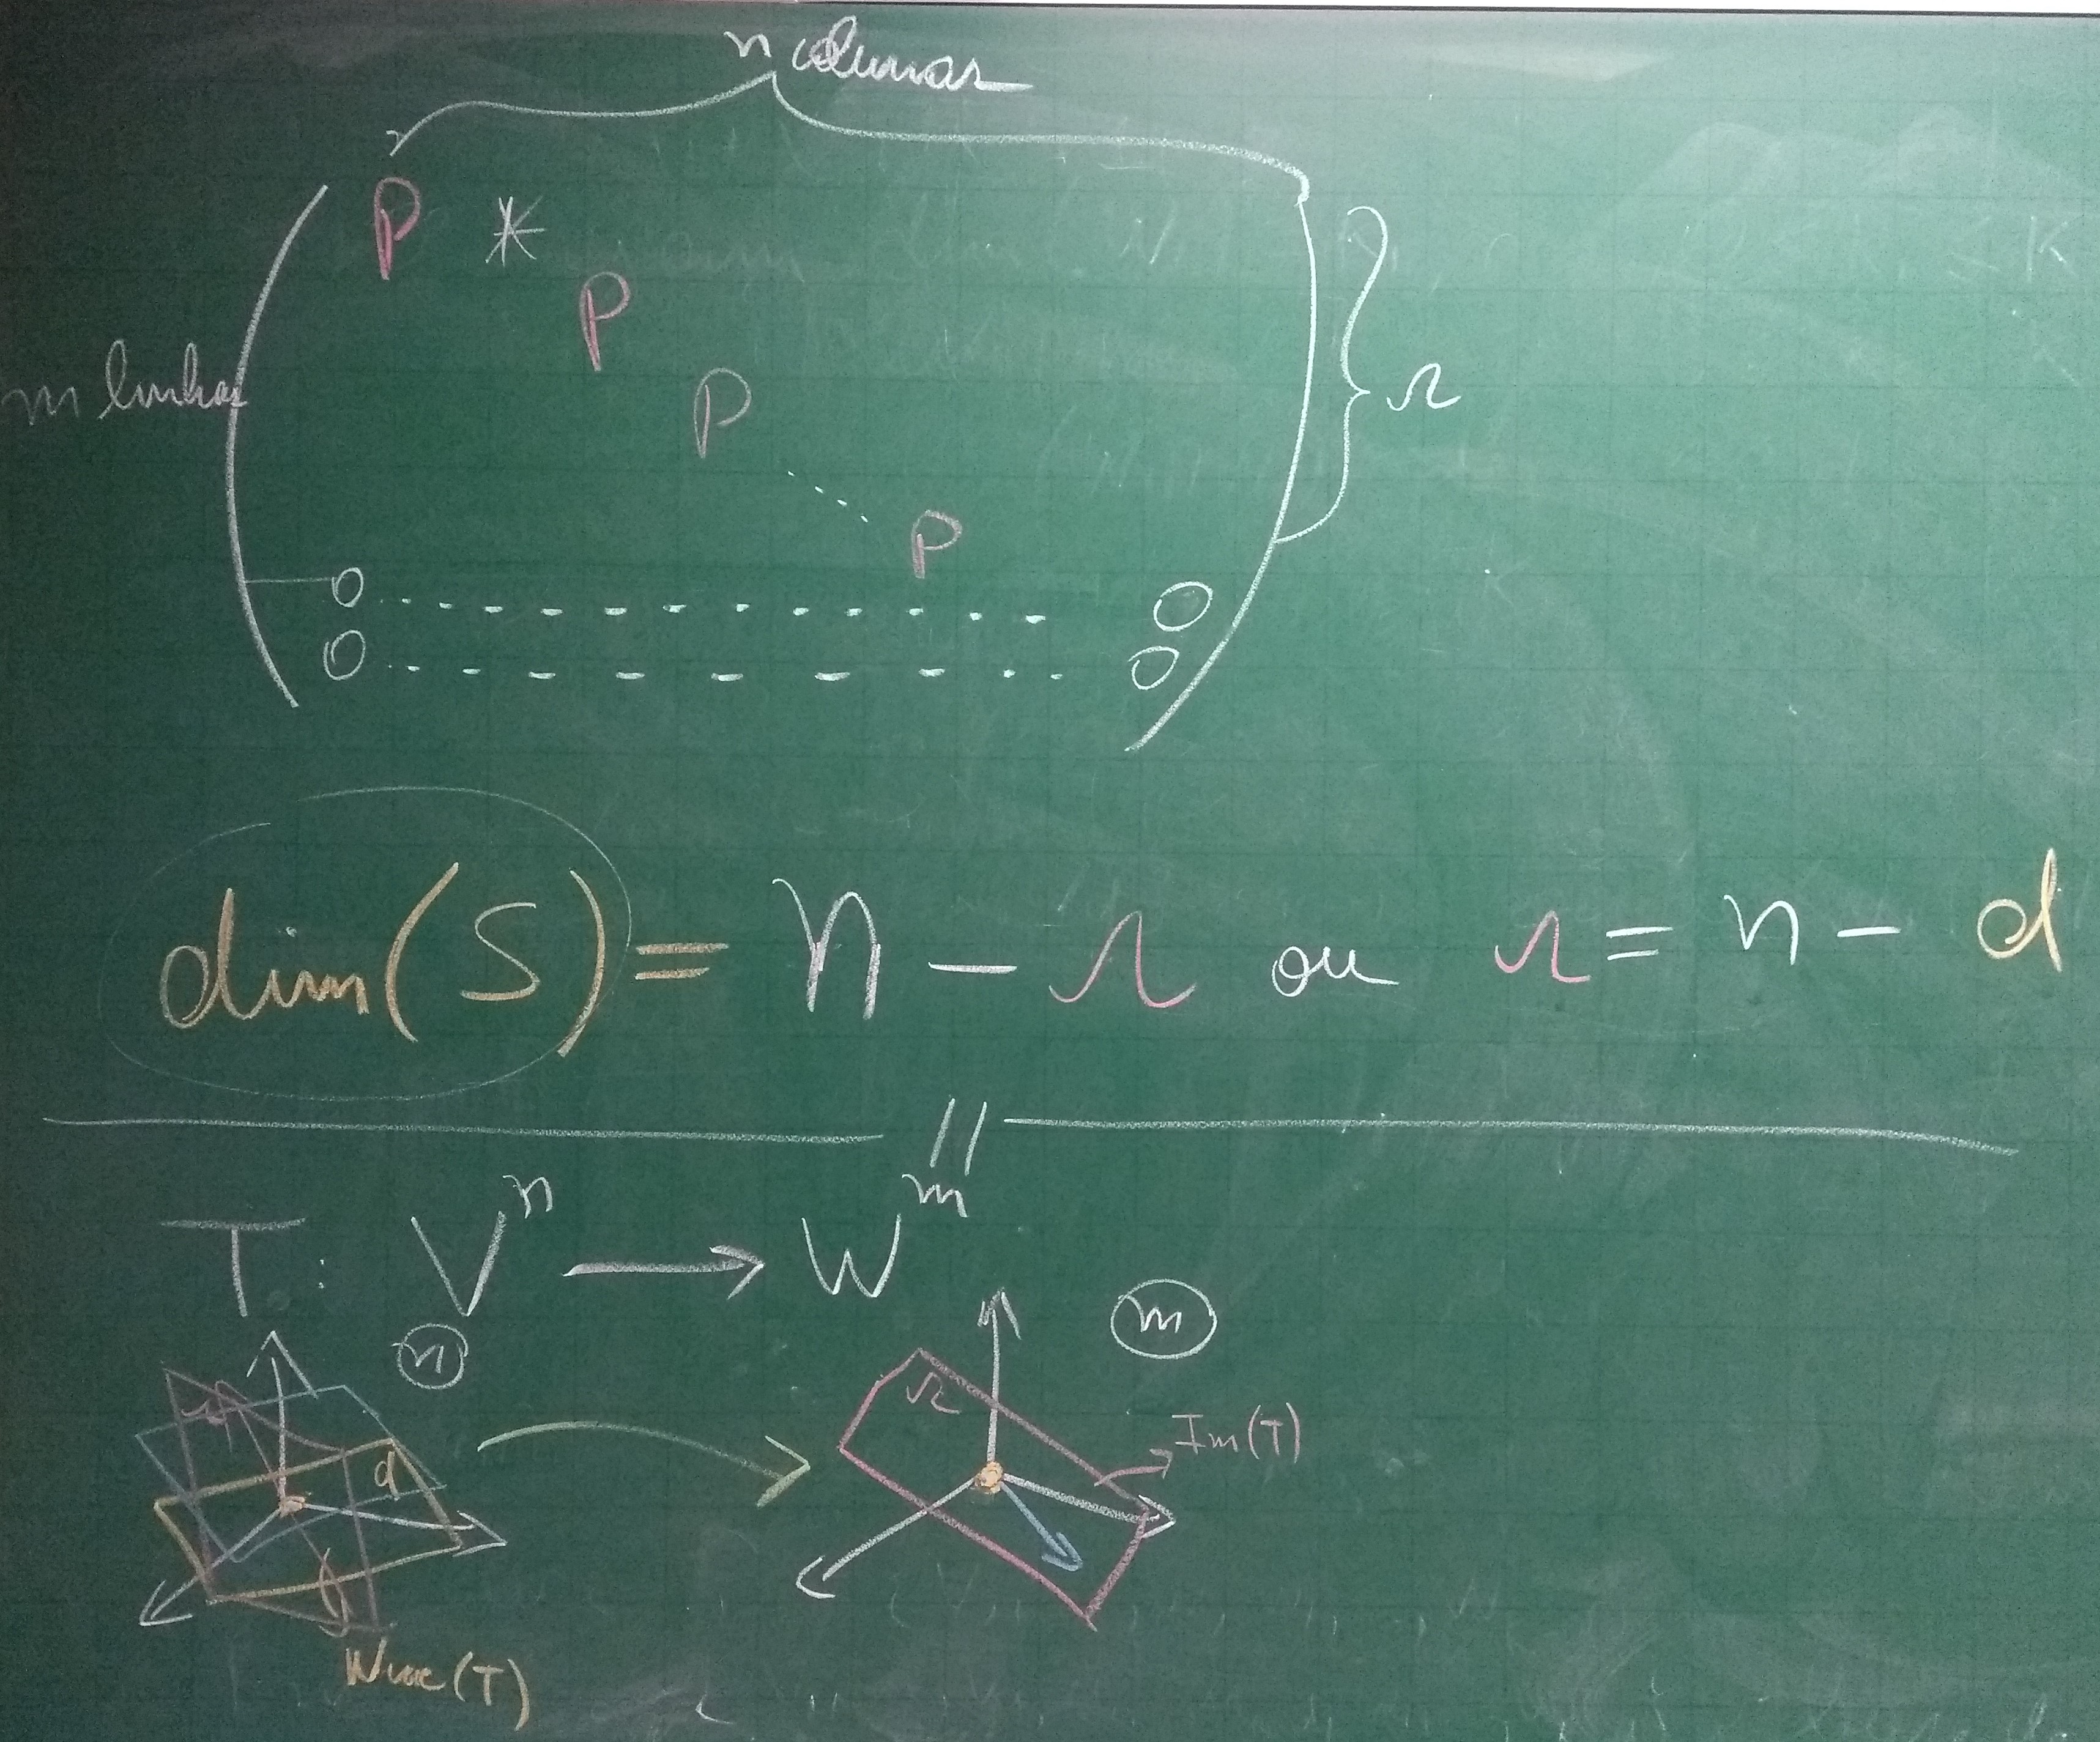 n colunas
P *
P
m linhas
r
P
P
0 0
0 0
dim(S) = n - r ou r = n - d
T: V^n → W^m
n m
r r
Im(T)
d
Nuc(T)